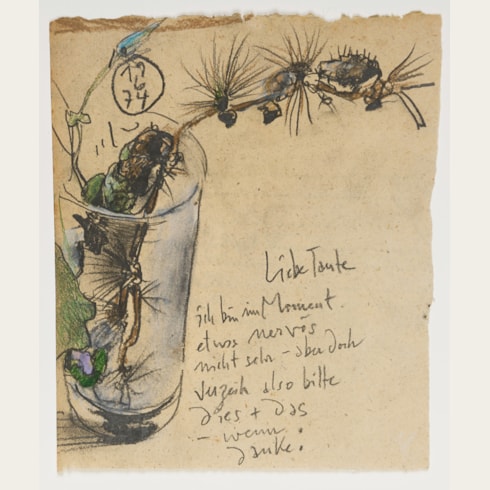 17
6
74
Liebe Tante
ich bin im Moment
etwas nervös
nicht sehr – aber doch
verzeih also bitte
dies + das
– wenn
Danke!